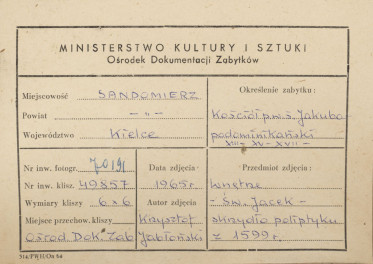 MINISTERSTWO KULTURY I SZTUKI
Ośrodek Dokumentacji Zabytków
Miejscowość SANDOMIERZ
Powiat — „ —
Województwo Kielce
Określenie zabytku:
Kościół p.w. ś. Jakuba
podominikański
XIII - XV - XVII -
Nr inw. fotogr.
Nr inw. klisz. 49857
Wymiary kliszy 6x6
Miejsce przechow. kliszy
Ośrod. Dok. Zab
Data zdjęcia:
1965 r.
Autor zdjęcia:
Krzysztof
Jabłoński
Przedmiot zdjęcia:
wnętrze
- Św. Jacek -
skrzydło poliptyku
z 1599 r.